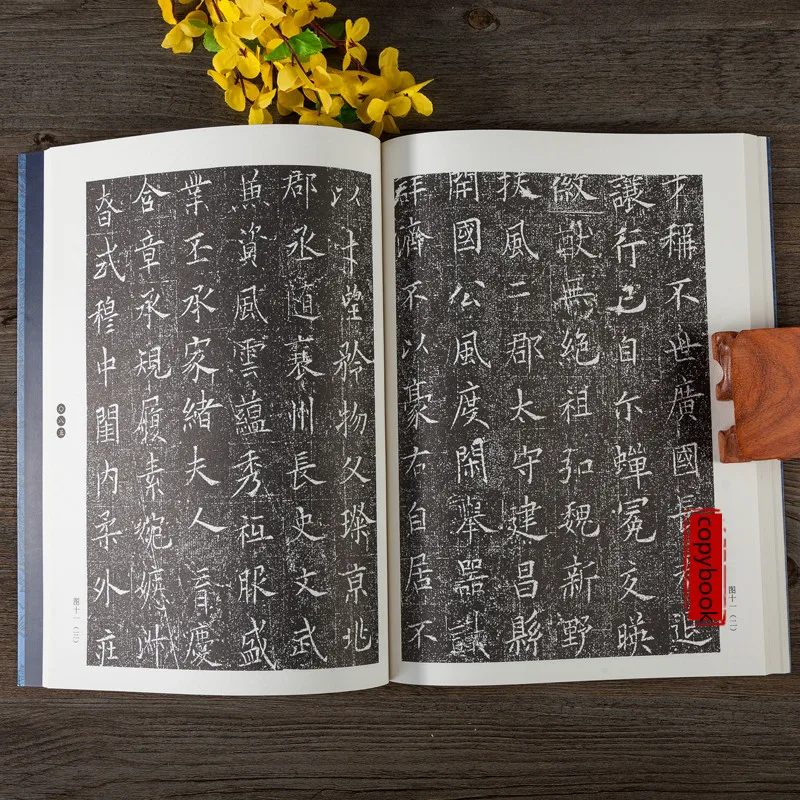 才稱不世廣國長退
讓行己自尔蟬冕交暎
紱猷無絕祖弘魏新野
扶風二郡太守建昌縣
開國公風度閑舉器識
詳濟不以豪右自居不
图十一(二)
copybook
以才望矜物父璨京兆
郡丞随襄州長史文武
兼資風雲蘊秀袨服盛
業丕承家緒夫人音慶
含章承規履素婉嫕淑
式穆中閨内柔外莊
图十一(三)
〇八五